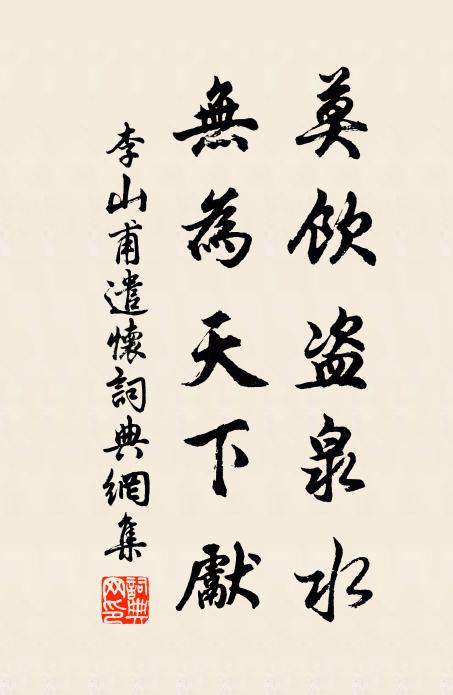 莫飲盜泉水
無為天下獻
李山甫遣懷詞典網集
詞典网印